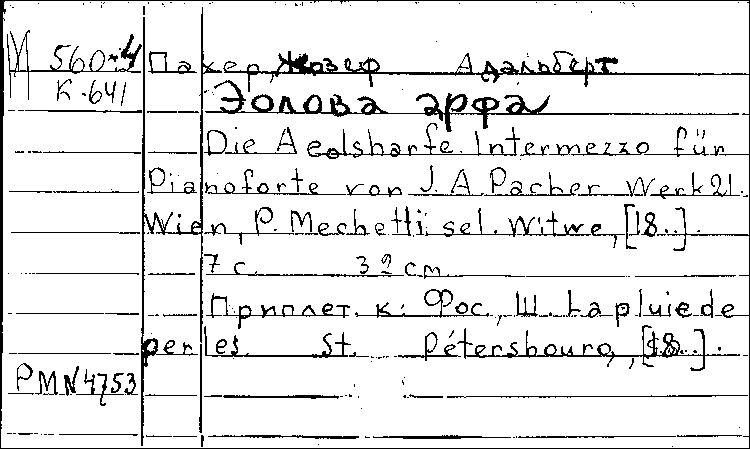 М 560-4 Пахер, Жозеф Адальберт
К-641 Эолова арфа
Die Aeolsharfe. Intermezzo für
Pianoforte von J. A. Pacher. Werk 21.
Wien, P. Mechetti sel. Witwe, [18..].
7 с. 32 cm
Приплет. к: Фос., Ш. La pluie de
perles. St. Pétersbourg, [18..].
PMN4753